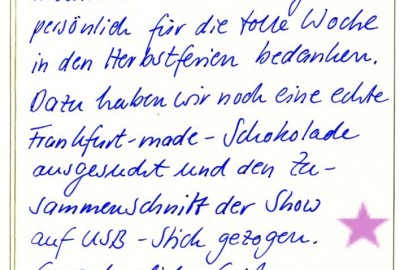 persönlich für die tolle Woche
in den Herbstferien bedanken.
Dazu haben wir noch eine echte
Frankfurt-made-Schokolade
ausgesucht und den Zu-
sammenschnitt der Show
auf USB-Stick gezogen.